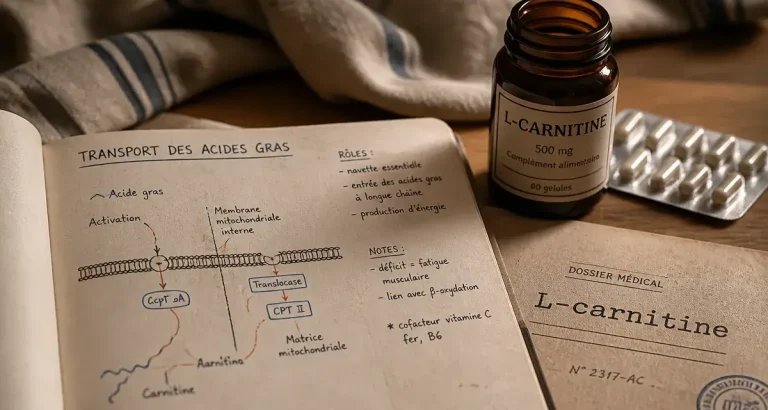 TRANSPORT DES ACIDES GRAS
Acide gras
Activation
Membrane
mitochondriale
interne
Translocase
CPT II
Matrice
mitochondriale
Aarnitino
Carnitine
RÔLES :
- navette essentielle
- entrée des acides gras
à longue chaîne
- production d'énergie
NOTES :
- déficit = fatigue
musculaire
- lien avec β-oxydation
* cofacteur vitamine C
fer, B6
L-CARNITINE
500 mg
Complément alimentaire
60 gélules
DOSSIER MÉDICAL
L-carnitine
N° 2317-AC